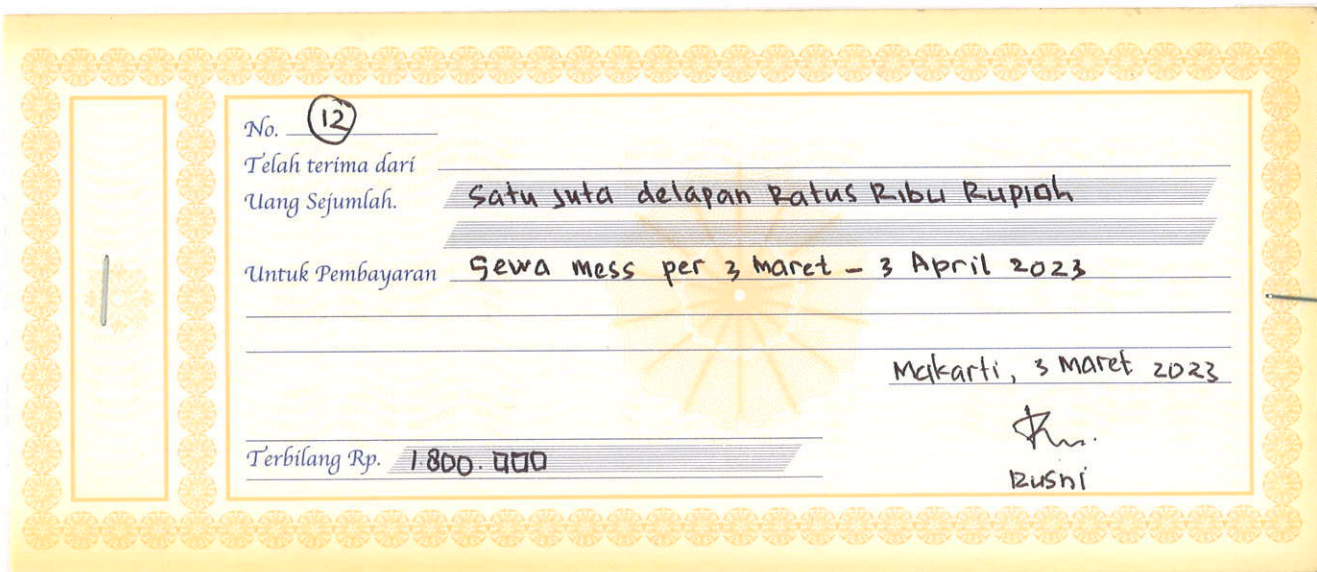 No. 12
Telah terima dari
Uang Sejumlah. Satu Juta delapan Ratus Ribu Rupiah
Untuk Pembayaran Sewa mess per 3 Maret - 3 April 2023
Makarti, 3 Maret 2023
Terbilang Rp. 1.800.000
Rusni